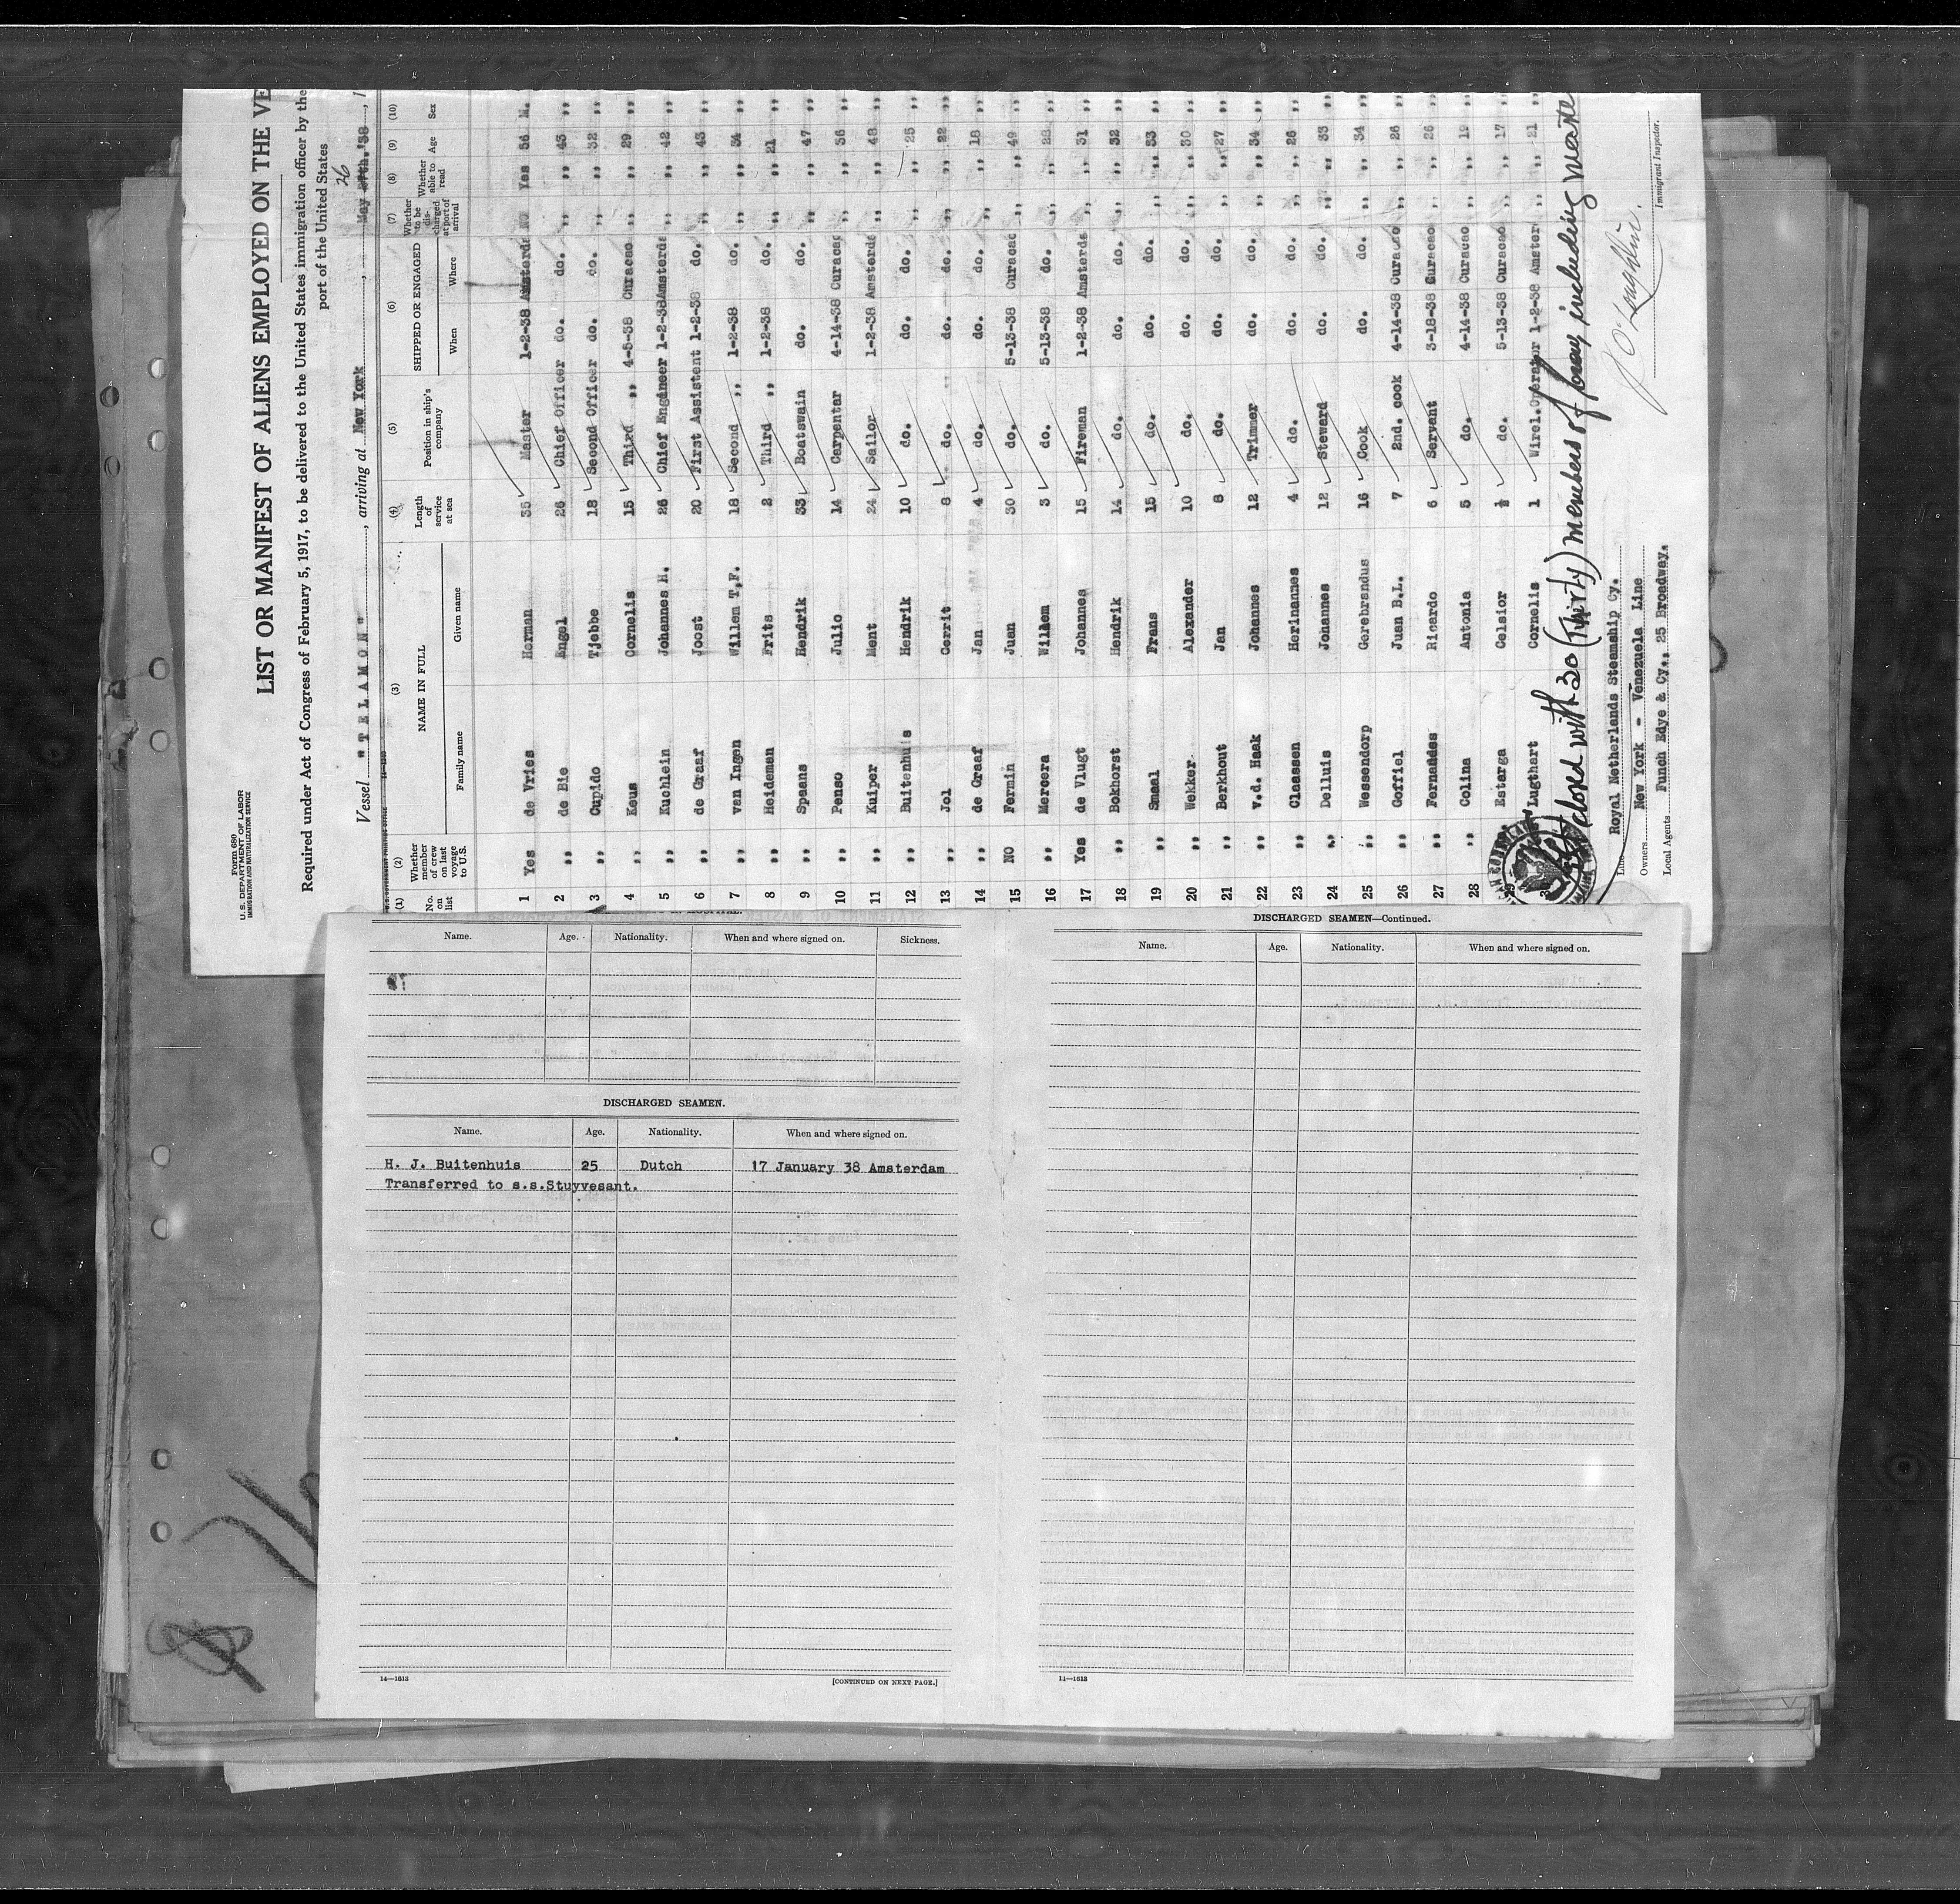 Form 680
U. S. DEPARTMENT OF LABOR
IMMIGRATION AND NATURALIZATION SERVICE
LIST OR MANIFEST OF ALIENS EMPLOYED ON THE VE
Required under Act of Congress of February 5, 1917, to be delivered to the United States immigration officer by the
port of the United States
Vessel "TELAMON", arriving at New York, May 27th.'38, 1
26
(1) (2) (3) (4) (5) (6) (7) (8) (9) (10)
No. on list Whether member of crew on last voyage to U.S. NAME IN FULL Family name Given name Length of service at sea Position in ship's company SHIPPED OR ENGAGED When Where Whether to be discharged at port of arrival Whether able to read Age Sex
1 Yes de Vries Herman 35 Master 1-2-38 Amsterda NO Yes 56 M.
2 ,, de Bie Engel 26 Chief Officer do. do. ,, ,, 43 ,,
3 ,, Cupido Tjebbe 18 Second Officer do. do. ,, ,, 32 ,,
4 ,, Keus Cornelis 15 Third ,, 4-5-38 Curacao ,, ,, 29 ,,
5 ,, Kuchlein Johannes H. 26 Chief Engineer 1-2-38 Amsterda ,, ,, 42 ,,
6 ,, de Graaf Joost 20 First Assistent 1-2-38 do. ,, ,, 43 ,,
7 ,, van Ingen Willem T,F. 18 Second ,, 1-2-38 do. ,, ,, 34 ,,
8 ,, Heideman Frits 2 Third ,, 1-2-38 do. ,, ,, 21 ,,
9 ,, Spaans Hendrik 33 Boatswain do. do. ,, ,, 47 ,,
10 ,, Penso Julio 14 Carpentar 4-14-38 Curacao ,, ,, 36 ,,
11 ,, Kuiper Ment 24 Sailor 1-2-38 Amsterda ,, ,, 48 ,,
12 ,, Buitenhuis Hendrik 10 do. do. do. ,, ,, 25 ,,
13 ,, Jol Gerrit 8 do. do. do. ,, ,, 22 ,,
14 ,, de Graaf Jan 4 do. do. do. ,, ,, 18 ,,
15 NO Fermin Juan 30 do. 5-13-38 Curacao ,, ,, 49 ,,
16 ,, Mercera Wilhem 3 do. 5-13-38 do. ,, ,, 28 ,,
17 Yes de Vlugt Johannes 15 Fireman 1-2-38 Amsterda ,, ,, 31 ,,
18 ,, Bokhorst Hendrik 14 do. do. do. ,, ,, 32 ,,
19 ,, Smaal Frans 15 do. do. do. ,, ,, 33 ,,
20 ,, Wekker Alexander 10 do. do. do. ,, ,, 30 ,,
21 ,, Berkhout Jan 8 do. do. do. ,, ,, 27 ,,
22 ,, v.d. Haak Johannes 12 Trimmer do. do. ,, ,, 34 ,,
23 ,, Claassen Herinannes 4 do. do. do. ,, ,, 26 ,,
24 ,, Delluis Johannes 12 Steward do. do. ,, ,, 33 ,,
25 ,, Wessendorp Gerebrandus 16 Cook do. do. ,, ,, 34 ,,
26 ,, Goffiel Juan B.L. 7 2nd. cook 4-14-38 Curacao ,, ,, 26 ,,
27 ,, Fernandes Ricardo 6 Servant 3-18-38 Curacao ,, ,, 26 ,,
28 ,, Colina Antonia 5 do. 4-14-38 Curacao ,, ,, 19 ,,
29 Estarga Celsior ½ do. 5-13-38 Curacao ,, ,, 17 ,,
Lugthart Cornelis 1 Wirel.Operator 1-2-38 Amster ,, ,, 21 ,,
closed with 30 (Thirty) members of crew including master
Line Royal Netherlands Steamship Cy.
Owners New York - Venezuela Line
Local Agents Funch Edye & Cy., 25 Broadway.
J O'Loughlin.
Immigrant Inspector.
Name. Age. Nationality. When and where signed on. Sickness.
DISCHARGED SEAMEN.
Name. Age. Nationality. When and where signed on.
H. J. Buitenhuis 25 Dutch 17 January 38 Amsterdam
Transferred to s.s.Stuyvesant.
14—1613
[CONTINUED ON NEXT PAGE.]
DISCHARGED SEAMEN—Continued.
Name. Age. Nationality. When and where signed on.
11—1613